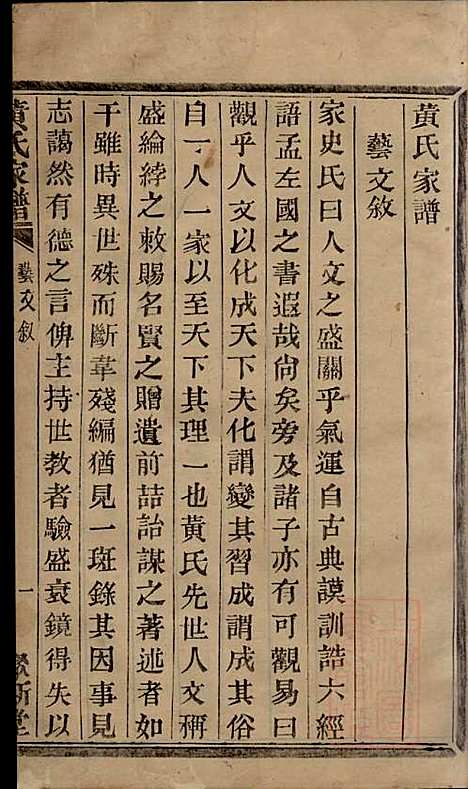 黃氏家譜
藝文敘
家史氏曰人文之盛關乎氣運自古典謨訓誥六經
語孟左國之書遐哉尚矣旁及諸子亦有可觀易曰
觀乎人文以化成天下夫化謂變其習成謂成其俗
自一人一家以至天下其理一也黃氏先世人文稱
盛綸綍之敕賜名賢之贈遺前喆詒謀之著述者如
干雖時異世殊而斷韋殘編猶見一斑錄其因事見
志藹然有德之言俾主持世教者驗盛衰鏡得失以
黃氏家譜
藝文敘
一